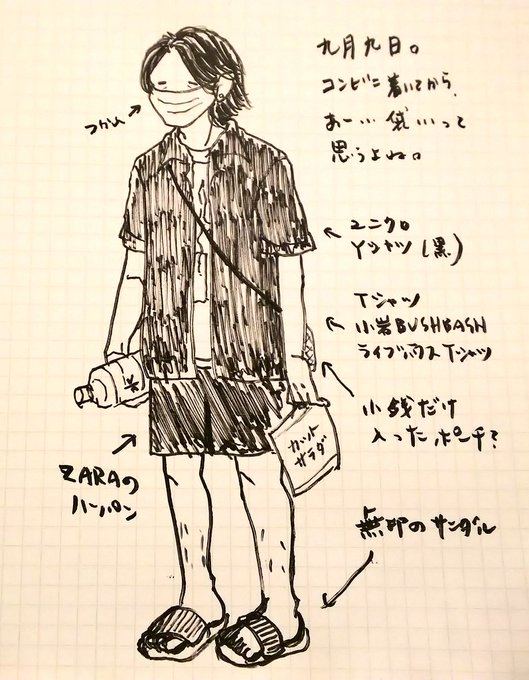 九月九日。
コンビニ着いてから、
あーい袋いって
思うよね。
つかれ
ユニクロ
Yシャツ(黒)
Tシャツ
小岩BUSHBASH
ライブハウスTシャツ
小銭だけ
入ったポーチ?
ZARAの
ハーパン
カット
サラダ
無印のサンダル